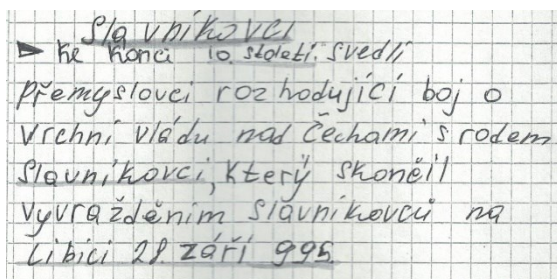 Slavníkovci
▶ Ke konci 10. století svedli
přemyslovci rozhodující boj o
vrchní vládu nad Čechami s rodem
Slavníkovci, který skončil
vyvražděním Slavníkovců na
Libici 28 září 995